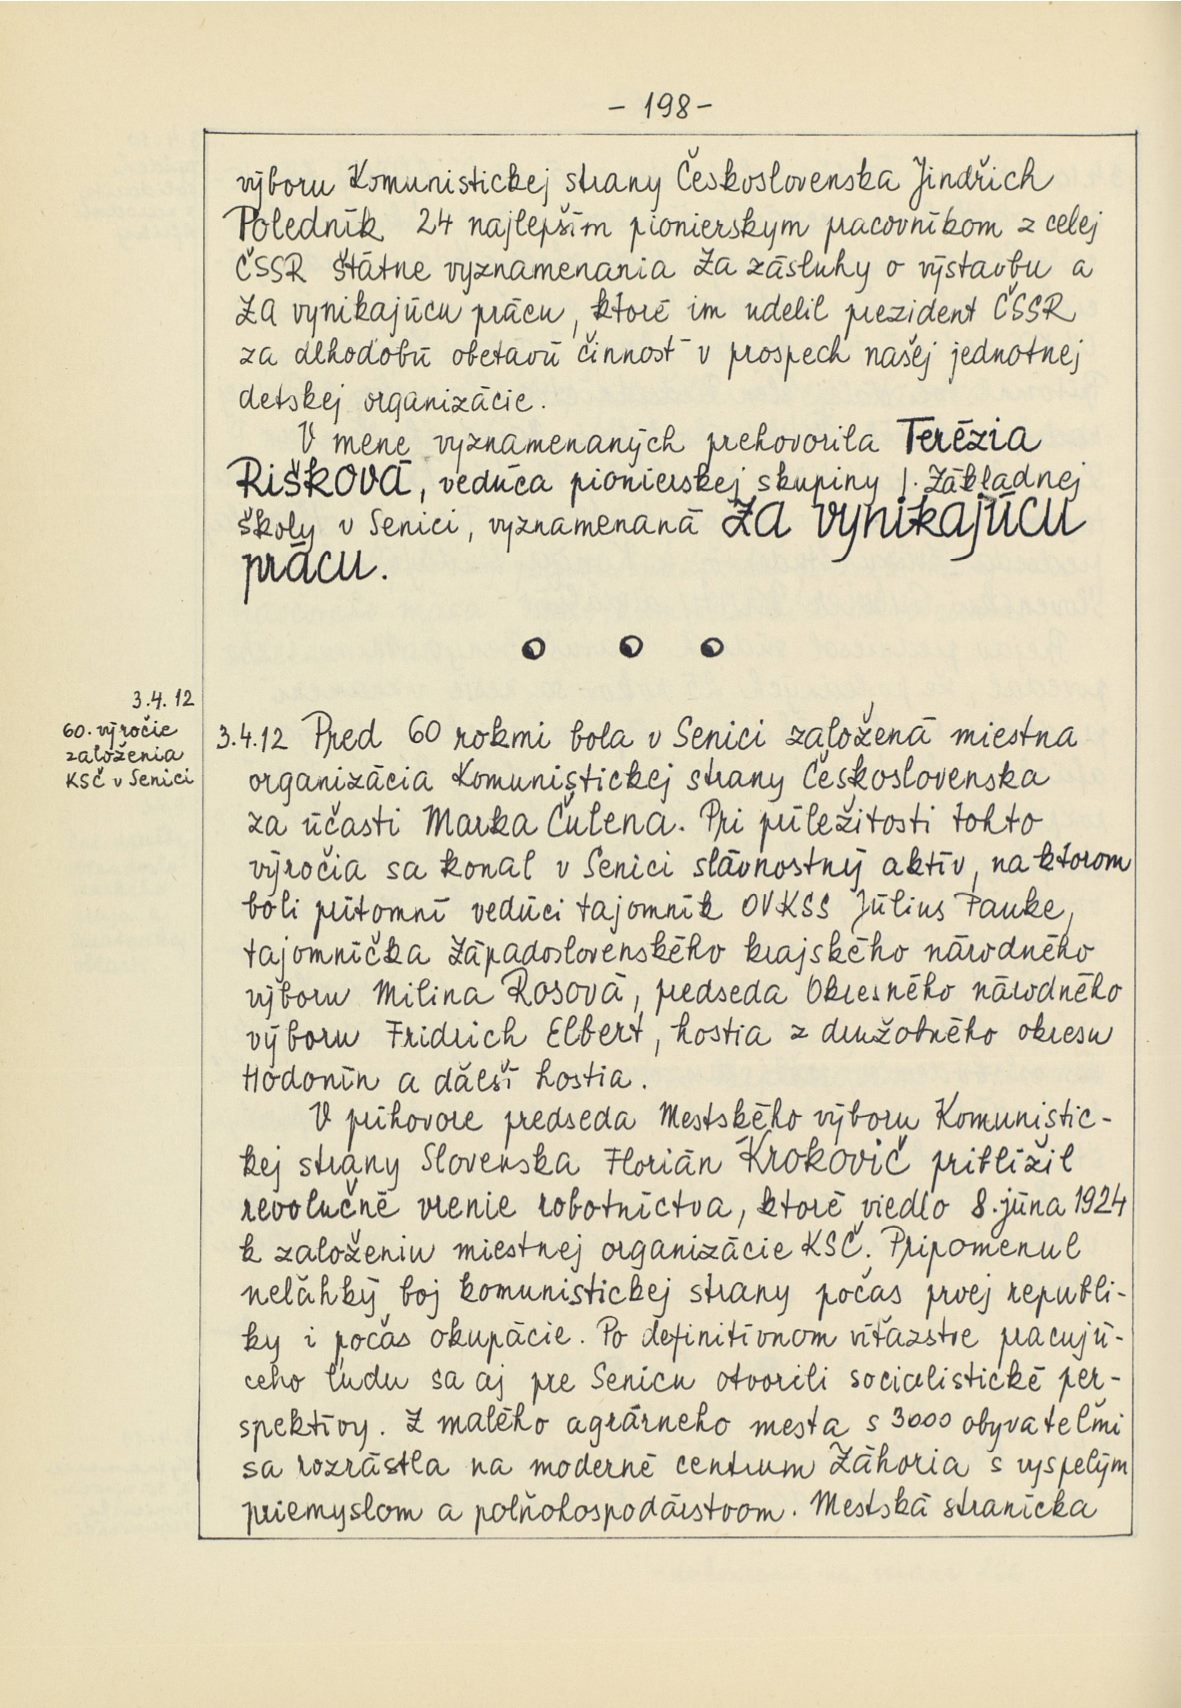 - 198 -
výboru Komunistickej strany Československa Jindřich
Poledník 24 najlepším pionierskym pracovníkom z celej
ČSSR štátne vyznamenania Za zásluhy o výstavbu a
Za vynikajúcu prácu, ktoré im udelil prezident ČSSR
za dlhodobú obetavú činnosť v prospech našej jednotnej
detskej organizácie.
V mene vyznamenaných prehovorila Terézia
Rišková, vedúca pionierskej skupiny 1. Základnej
školy v Senici, vyznamenaná Za vynikajúcu
prácu.
3.4.12
60. výročie
založenia
KSČ v Senici
3.4.12 Pred 60 rokmi bola v Senici založená miestna
organizácia Komunistickej strany Československa
za účasti Marka Čulena. Pri príležitosti tohto
výročia sa konal v Senici slávnostný aktív, na ktorom
boli prítomní vedúci tajomník OVKSS Július Fauke,
tajomníčka Západoslovenského krajského národného
výboru Milina Rosová, predseda Okresného národného
výboru Fridrich Elbert, hostia z družobného okresu
Hodonín a ďalší hostia.
V príhovore predseda Mestského výboru Komunistic-
kej strany Slovenska Florián Krokovič priblížil
revolučné vrenie robotníctva, ktoré viedlo 8. júna 1924
k založeniu miestnej organizácie KSČ. Pripomenul
neľahký boj komunistickej strany počas prvej republi-
ky i počas okupácie. Po definitívnom víťazstve pracujú-
ceho ľudu sa aj pre Senicu otvorili socialistické per-
spektívy. Z malého agrárneho mesta s 3000 obyvateľmi
sa rozrástla na moderné centrum Záhoria s vyspelým
priemyslom a poľnohospodárstvom. Mestská stranícka